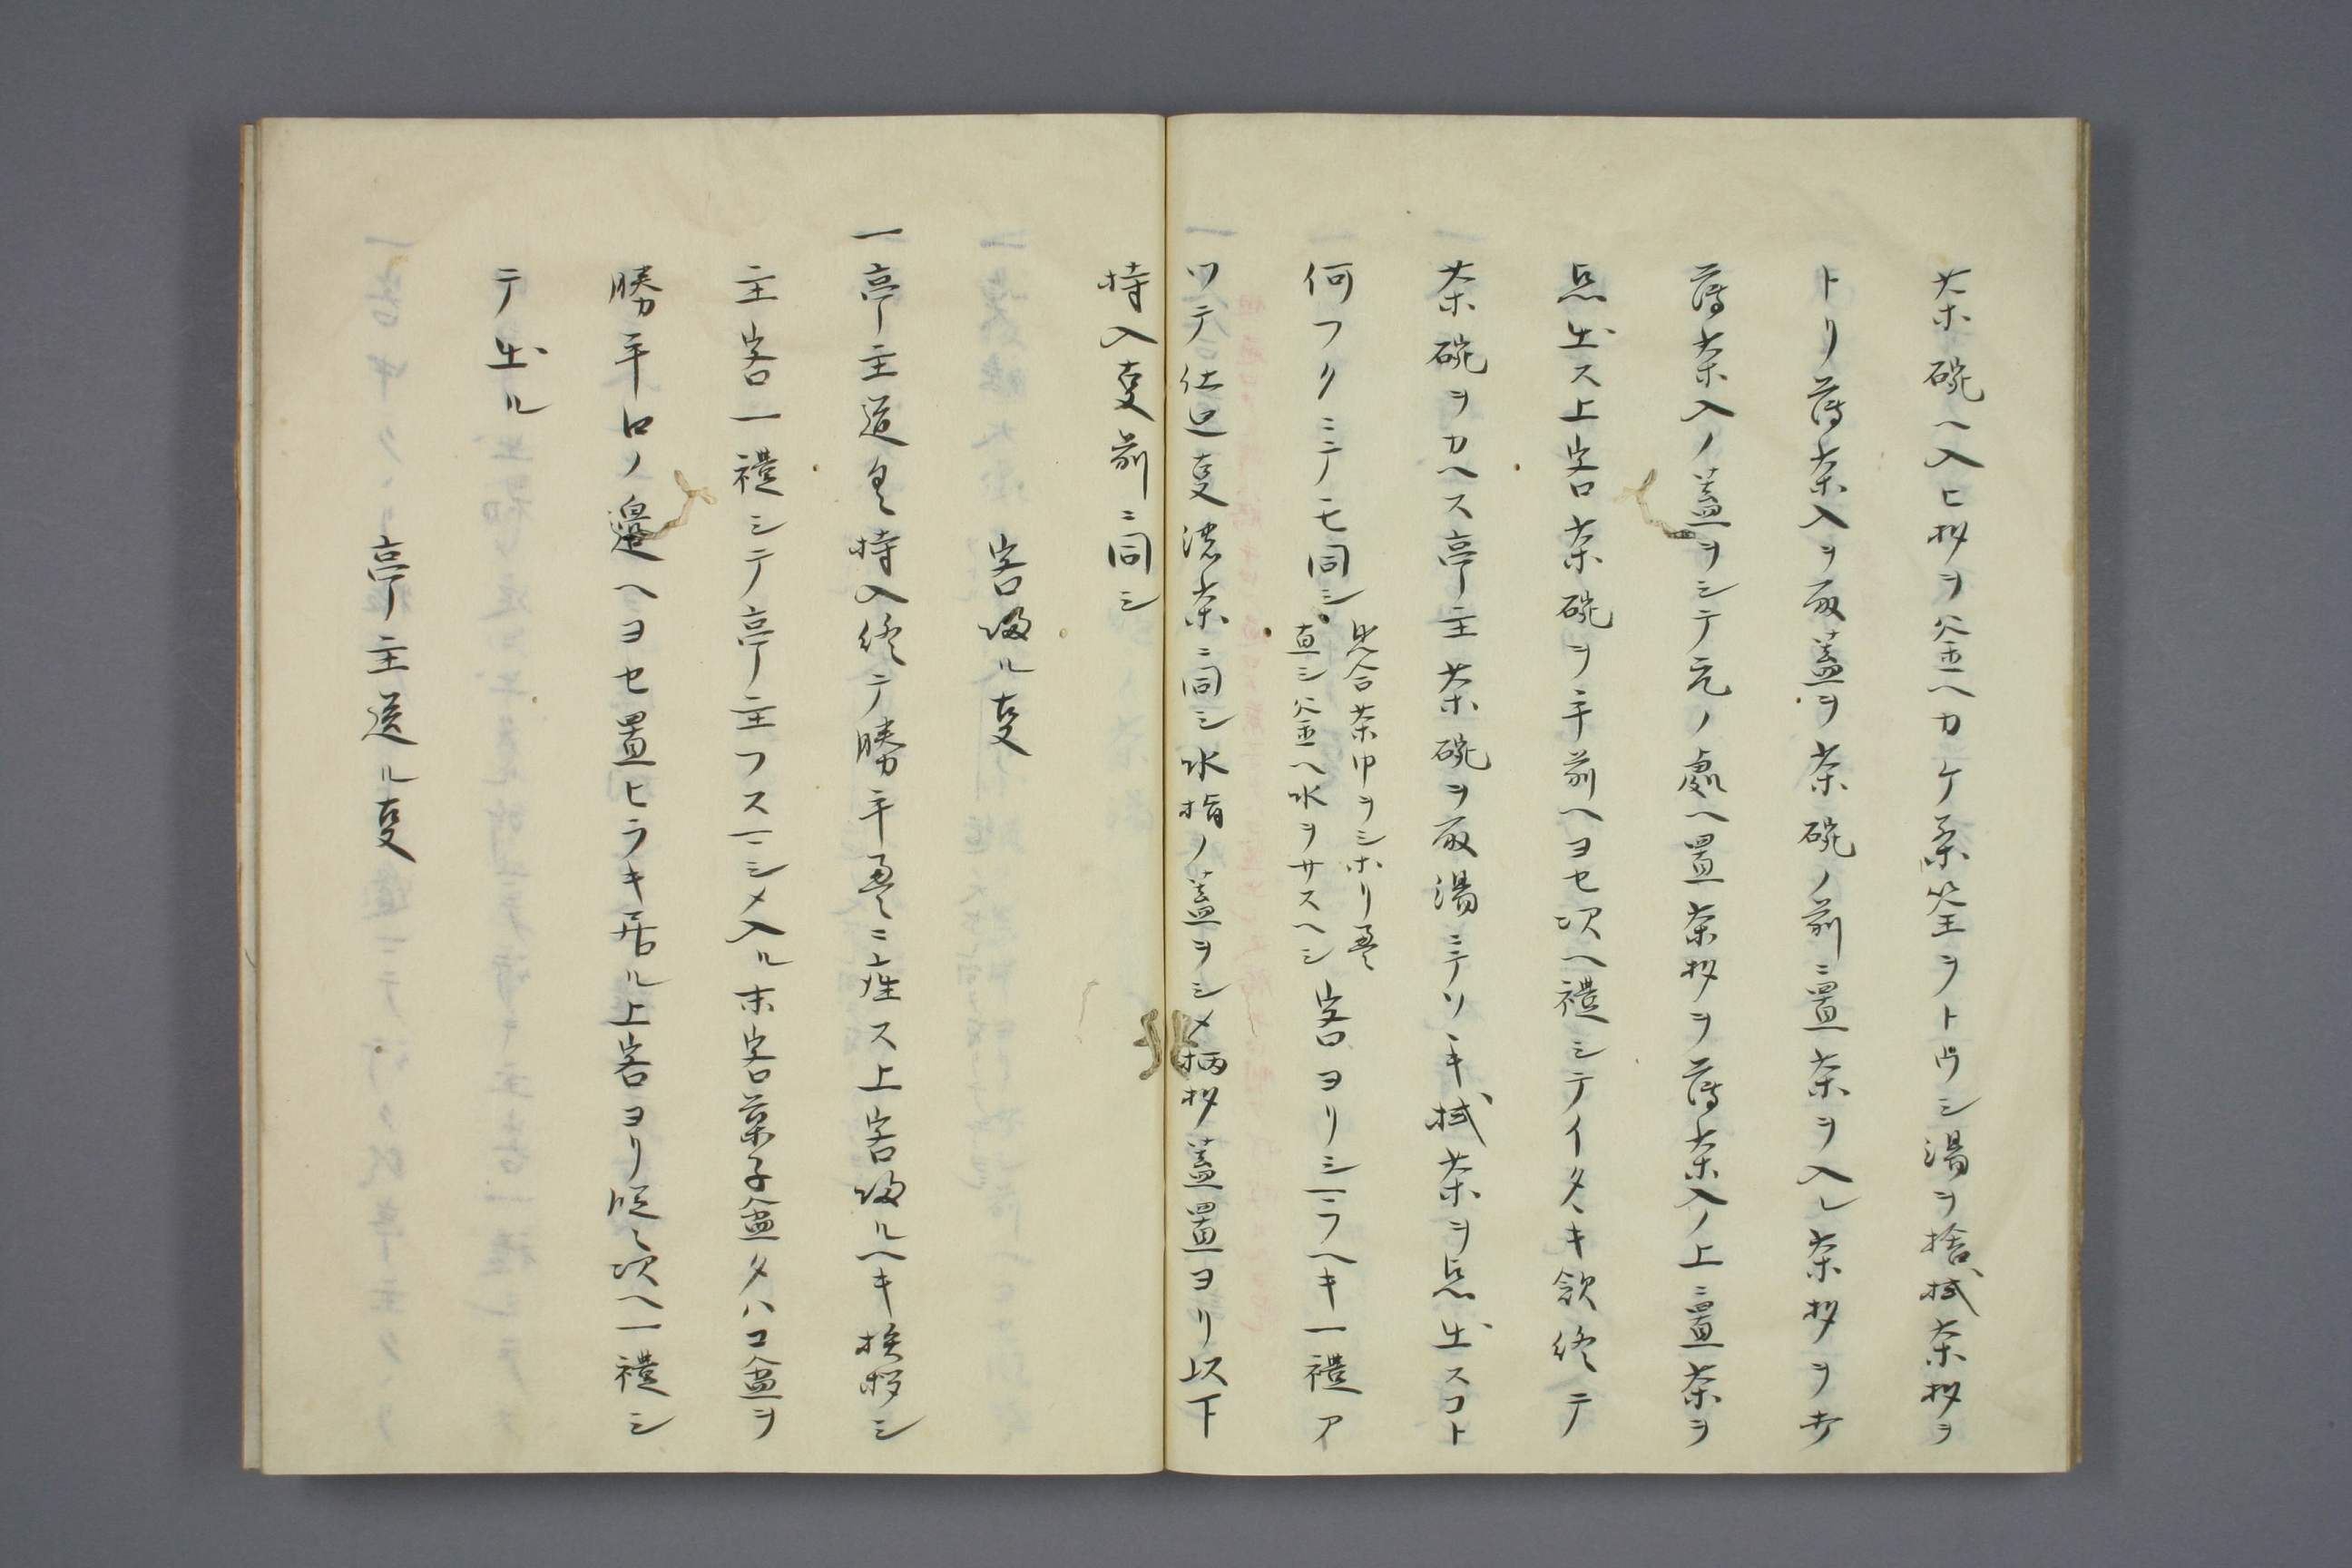 茶碗ヘ入ヒ杓ヲ釜ヘカケ茶筌ヲトウシ湯ヲ捨拭茶杓ヲ
トリ薄茶入ヲ取蓋ヲ茶碗ノ前ニ置茶ヲ入レ茶杓ヲ
薄茶入ノ蓋ヲシテ元ノ處ヘ置茶杓ヲ薄茶入ノ上ニ置茶ヲ
点出ス上客茶碗ヲ手前ヘヨセ次ヘ禮シテイタヽキ飲終テ
茶碗ヲカヘス亭主茶碗ヲ取湯ニテソヽキ拭茶ヲ点出スコト
何フクニテモ同シ
見合茶巾ヲシホリ畳
直シ釜ヘ水ヲサスヘシ
客ヨリシマフヘキ一禮ア
ツテ仕廻叓濃茶ニ同シ水指ノ蓋ヲシメ柄杓蓋置ヨリ以下
持入叓前ニ同シ
客帰ル叓
一亭主道具持入終テ勝手畳ニ座ス上客帰ルヘキ挨拶シ
主客一禮シテ亭主フスマシメ入ル末客菓子盆タハコ盆ヲ
勝手口ノ邉ヘヨセ置ヒラキ居ル上客ヨリ段々次ヘ一禮シ
テ出ル
亭主送ル叓